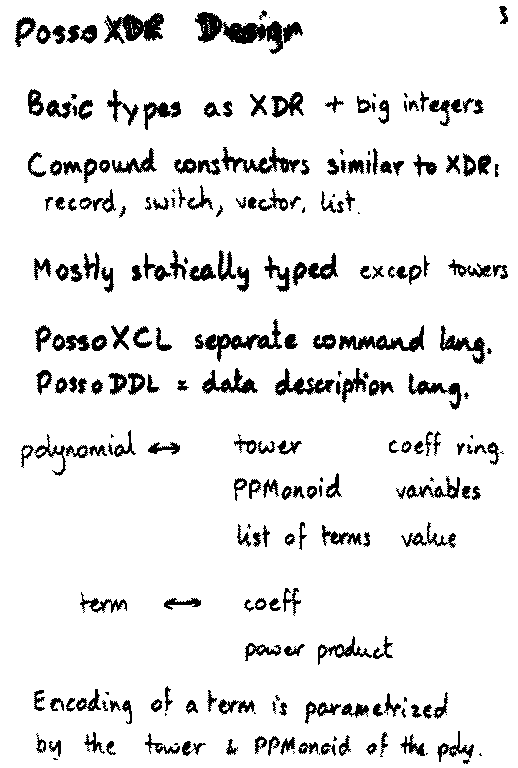 Posso XDR Design 3
Basic types as XDR + big integers
Compound constructors similar to XDR:
record, switch, vector, list.
Mostly statically typed except towers
PossoXCL separate command lang.
PossoDDL = data description lang.
polynomial ↔ tower coeff ring
PPMonoid variables
list of terms value
term ↔ coeff
power product
Encoding of a term is parametrized
by the tower & PPMonoid of the poly.